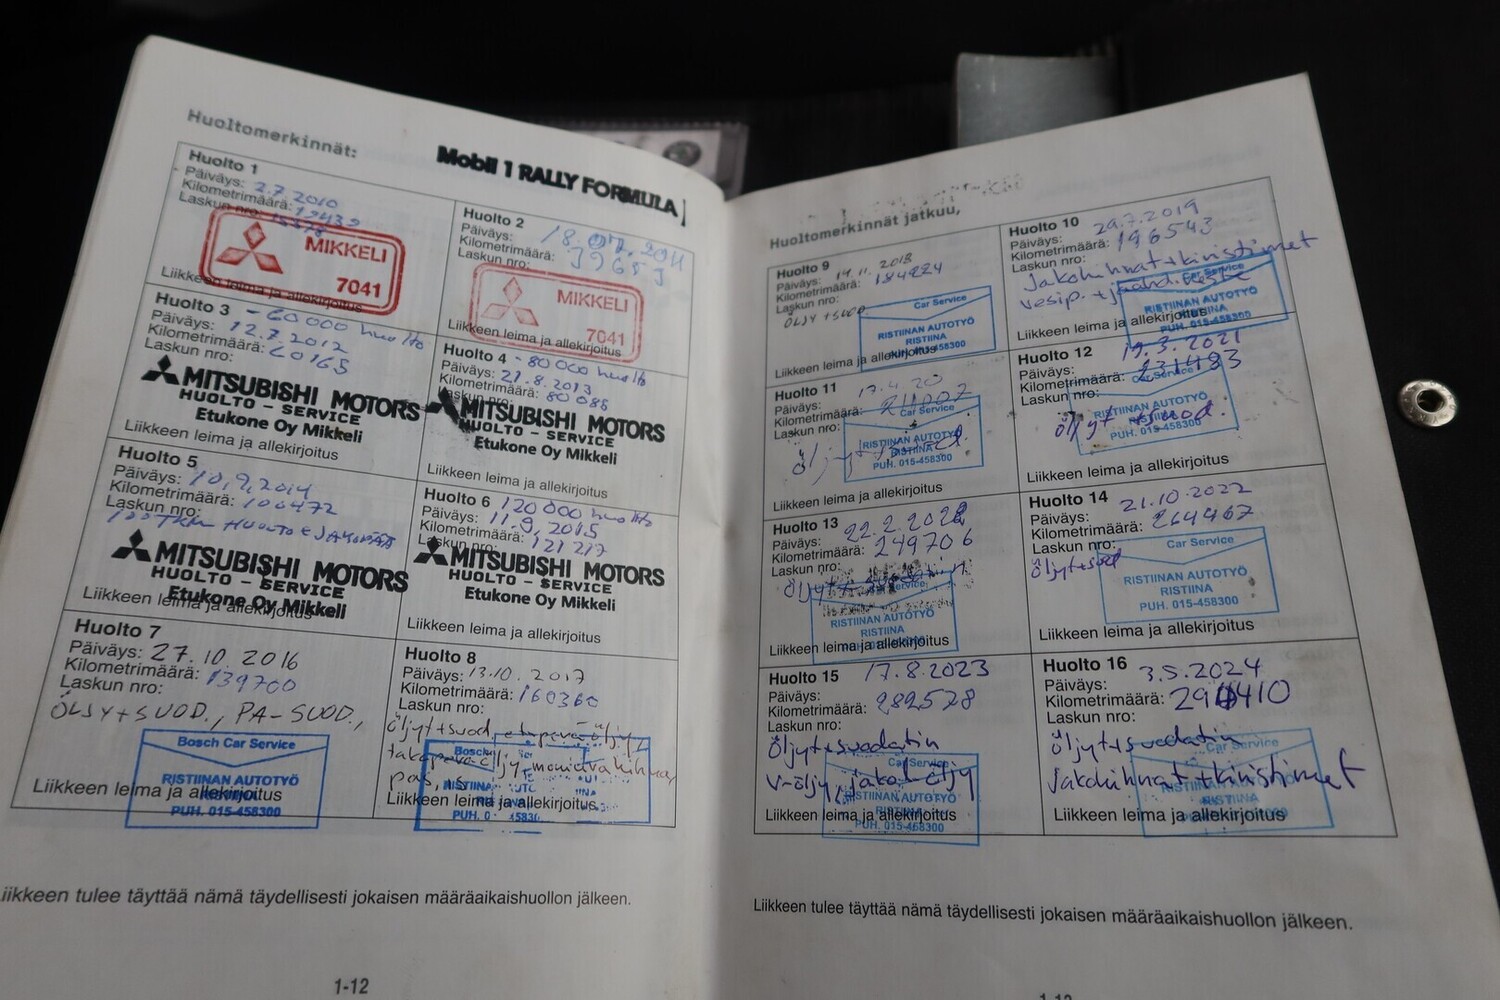 Huoltomerkinnät:
Mobil 1 RALLY FORMULA
Huolto 1
Päiväys: 2.7.2010
Kilometrimäärä: 19439
Laskun nro:
MIKKELI
7041
Liikkeen leima ja allekirjoitus
Huolto 2
Päiväys: 18.07.2011
Kilometrimäärä:
Laskun nro:
MIKKELI
7041
Liikkeen leima ja allekirjoitus
Huolto 3 - 60000 huolto
Päiväys: 12.7.2012
Kilometrimäärä: 60165
Laskun nro:
MITSUBISHI MOTORS
HUOLTO - SERVICE
Etukone Oy Mikkeli
Liikkeen leima ja allekirjoitus
Huolto 4 - 80000 huolto
Päiväys: 21.8.2013
Kilometrimäärä: 80086
Laskun nro:
MITSUBISHI MOTORS
HUOLTO - SERVICE
Etukone Oy Mikkeli
Liikkeen leima ja allekirjoitus
Huolto 5
Päiväys: 10.9.2014
Kilometrimäärä: 100472
Laskun nro:
HUOLTO
MITSUBISHI MOTORS
HUOLTO - SERVICE
Etukone Oy Mikkeli
Liikkeen leima ja allekirjoitus
Huolto 6 120000 huolto
Päiväys: 11.9.2015
Kilometrimäärä: 121217
Laskun nro:
MITSUBISHI MOTORS
HUOLTO - SERVICE
Etukone Oy Mikkeli
Liikkeen leima ja allekirjoitus
Huolto 7
Päiväys: 27.10 2016
Kilometrimäärä: 139700
Laskun nro:
ÖLJY+SUOD., PA-SUOD.,
Bosch Car Service
RISTIINAN AUTOTYÖ
RISTIINA
PUH. 015-458300
Liikkeen leima ja allekirjoitus
Huolto 8
Päiväys: 13.10.2017
Kilometrimäärä: 160360
Laskun nro:
öljyt+suod,
Bosch
Liikkeen leima ja allekirjoitus
Liikkeen tulee täyttää nämä täydellisesti jokaisen määräaikaishuollon jälkeen.
1-12
Huoltomerkinnät jatkuu,
Huolto 9
Päiväys: 14.11.2018
Kilometrimäärä: 184224
Laskun nro:
ÖLJY+SUOD
Car Service
RISTIINAN AUTOTYÖ
RISTIINA
PUH. 015-458300
Liikkeen leima ja allekirjoitus
Huolto 10
Päiväys: 29.7.2019
Kilometrimäärä: 196543
Laskun nro:
Jakohihnat+kiristimet
vesip. + jäähd.neste
Car Service
RISTIINAN AUTOTYÖ
RISTIINA
PUH. 015-458300
Liikkeen leima ja allekirjoitus
Huolto 11
Päiväys: 17.4.20
Kilometrimäärä:
Laskun nro:
Car Service
RISTIINAN AUTOTYÖ
RISTIINA
PUH. 015-458300
Liikkeen leima ja allekirjoitus
Huolto 12
Päiväys: 19.3.2021
Kilometrimäärä: 231493
Laskun nro:
öljyt+suod.
Car Service
RISTIINAN AUTOTYÖ
RISTIINA
PUH. 015-458300
Liikkeen leima ja allekirjoitus
Huolto 13
Päiväys: 22.2.2022
Kilometrimäärä: 249706
Laskun nro:
Car Service
RISTIINAN AUTOTYÖ
RISTIINA
Liikkeen leima ja allekirjoitus
Huolto 14
Päiväys: 21.10.2022
Kilometrimäärä: 264467
Laskun nro:
öljyt+suod
Car Service
RISTIINAN AUTOTYÖ
RISTIINA
PUH. 015-458300
Liikkeen leima ja allekirjoitus
Huolto 15
Päiväys: 17.8.2023
Kilometrimäärä: 282578
Laskun nro:
öljyt+suodatin
v-öljy, jakol.öljy
Car Service
RISTIINAN AUTOTYÖ
RISTIINA
PUH. 015-458300
Liikkeen leima ja allekirjoitus
Huolto 16
Päiväys: 3.5.2024
Kilometrimäärä: 294410
Laskun nro:
öljyt+suodatin
Jakohihnat+kiristimet
Car Service
RISTIINAN AUTOTYÖ
RISTIINA
Liikkeen leima ja allekirjoitus
Liikkeen tulee täyttää nämä täydellisesti jokaisen määräaikaishuollon jälkeen.